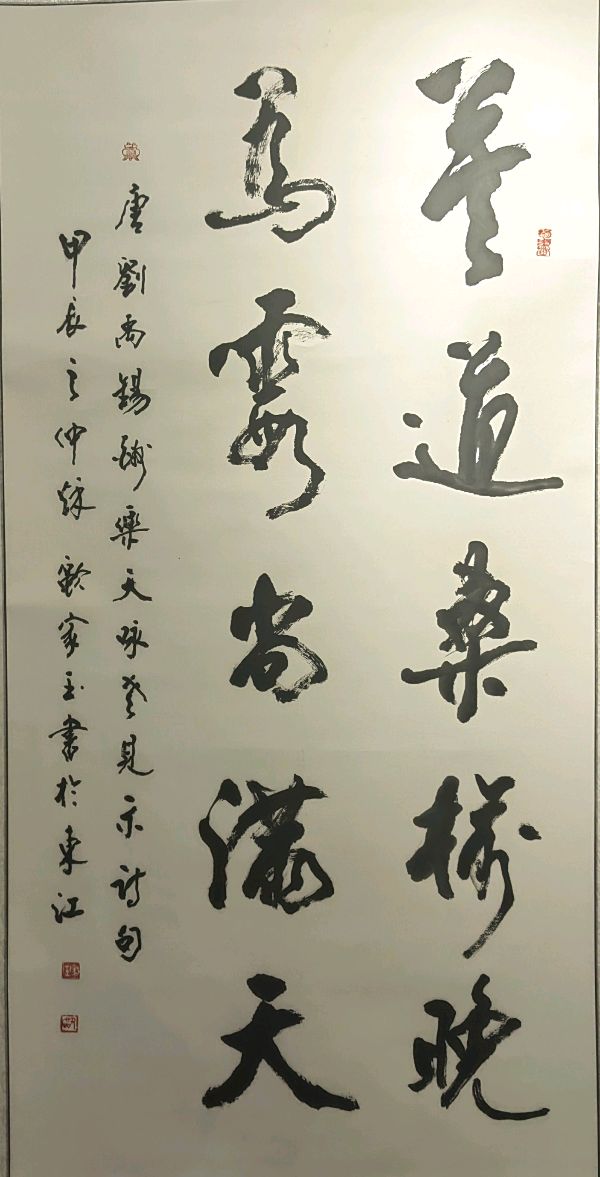 莫道桑榆晚
為霞尚滿天
唐劉禹錫酬樂天咏老見示詩句
甲辰之仲秋 家玉書於東江